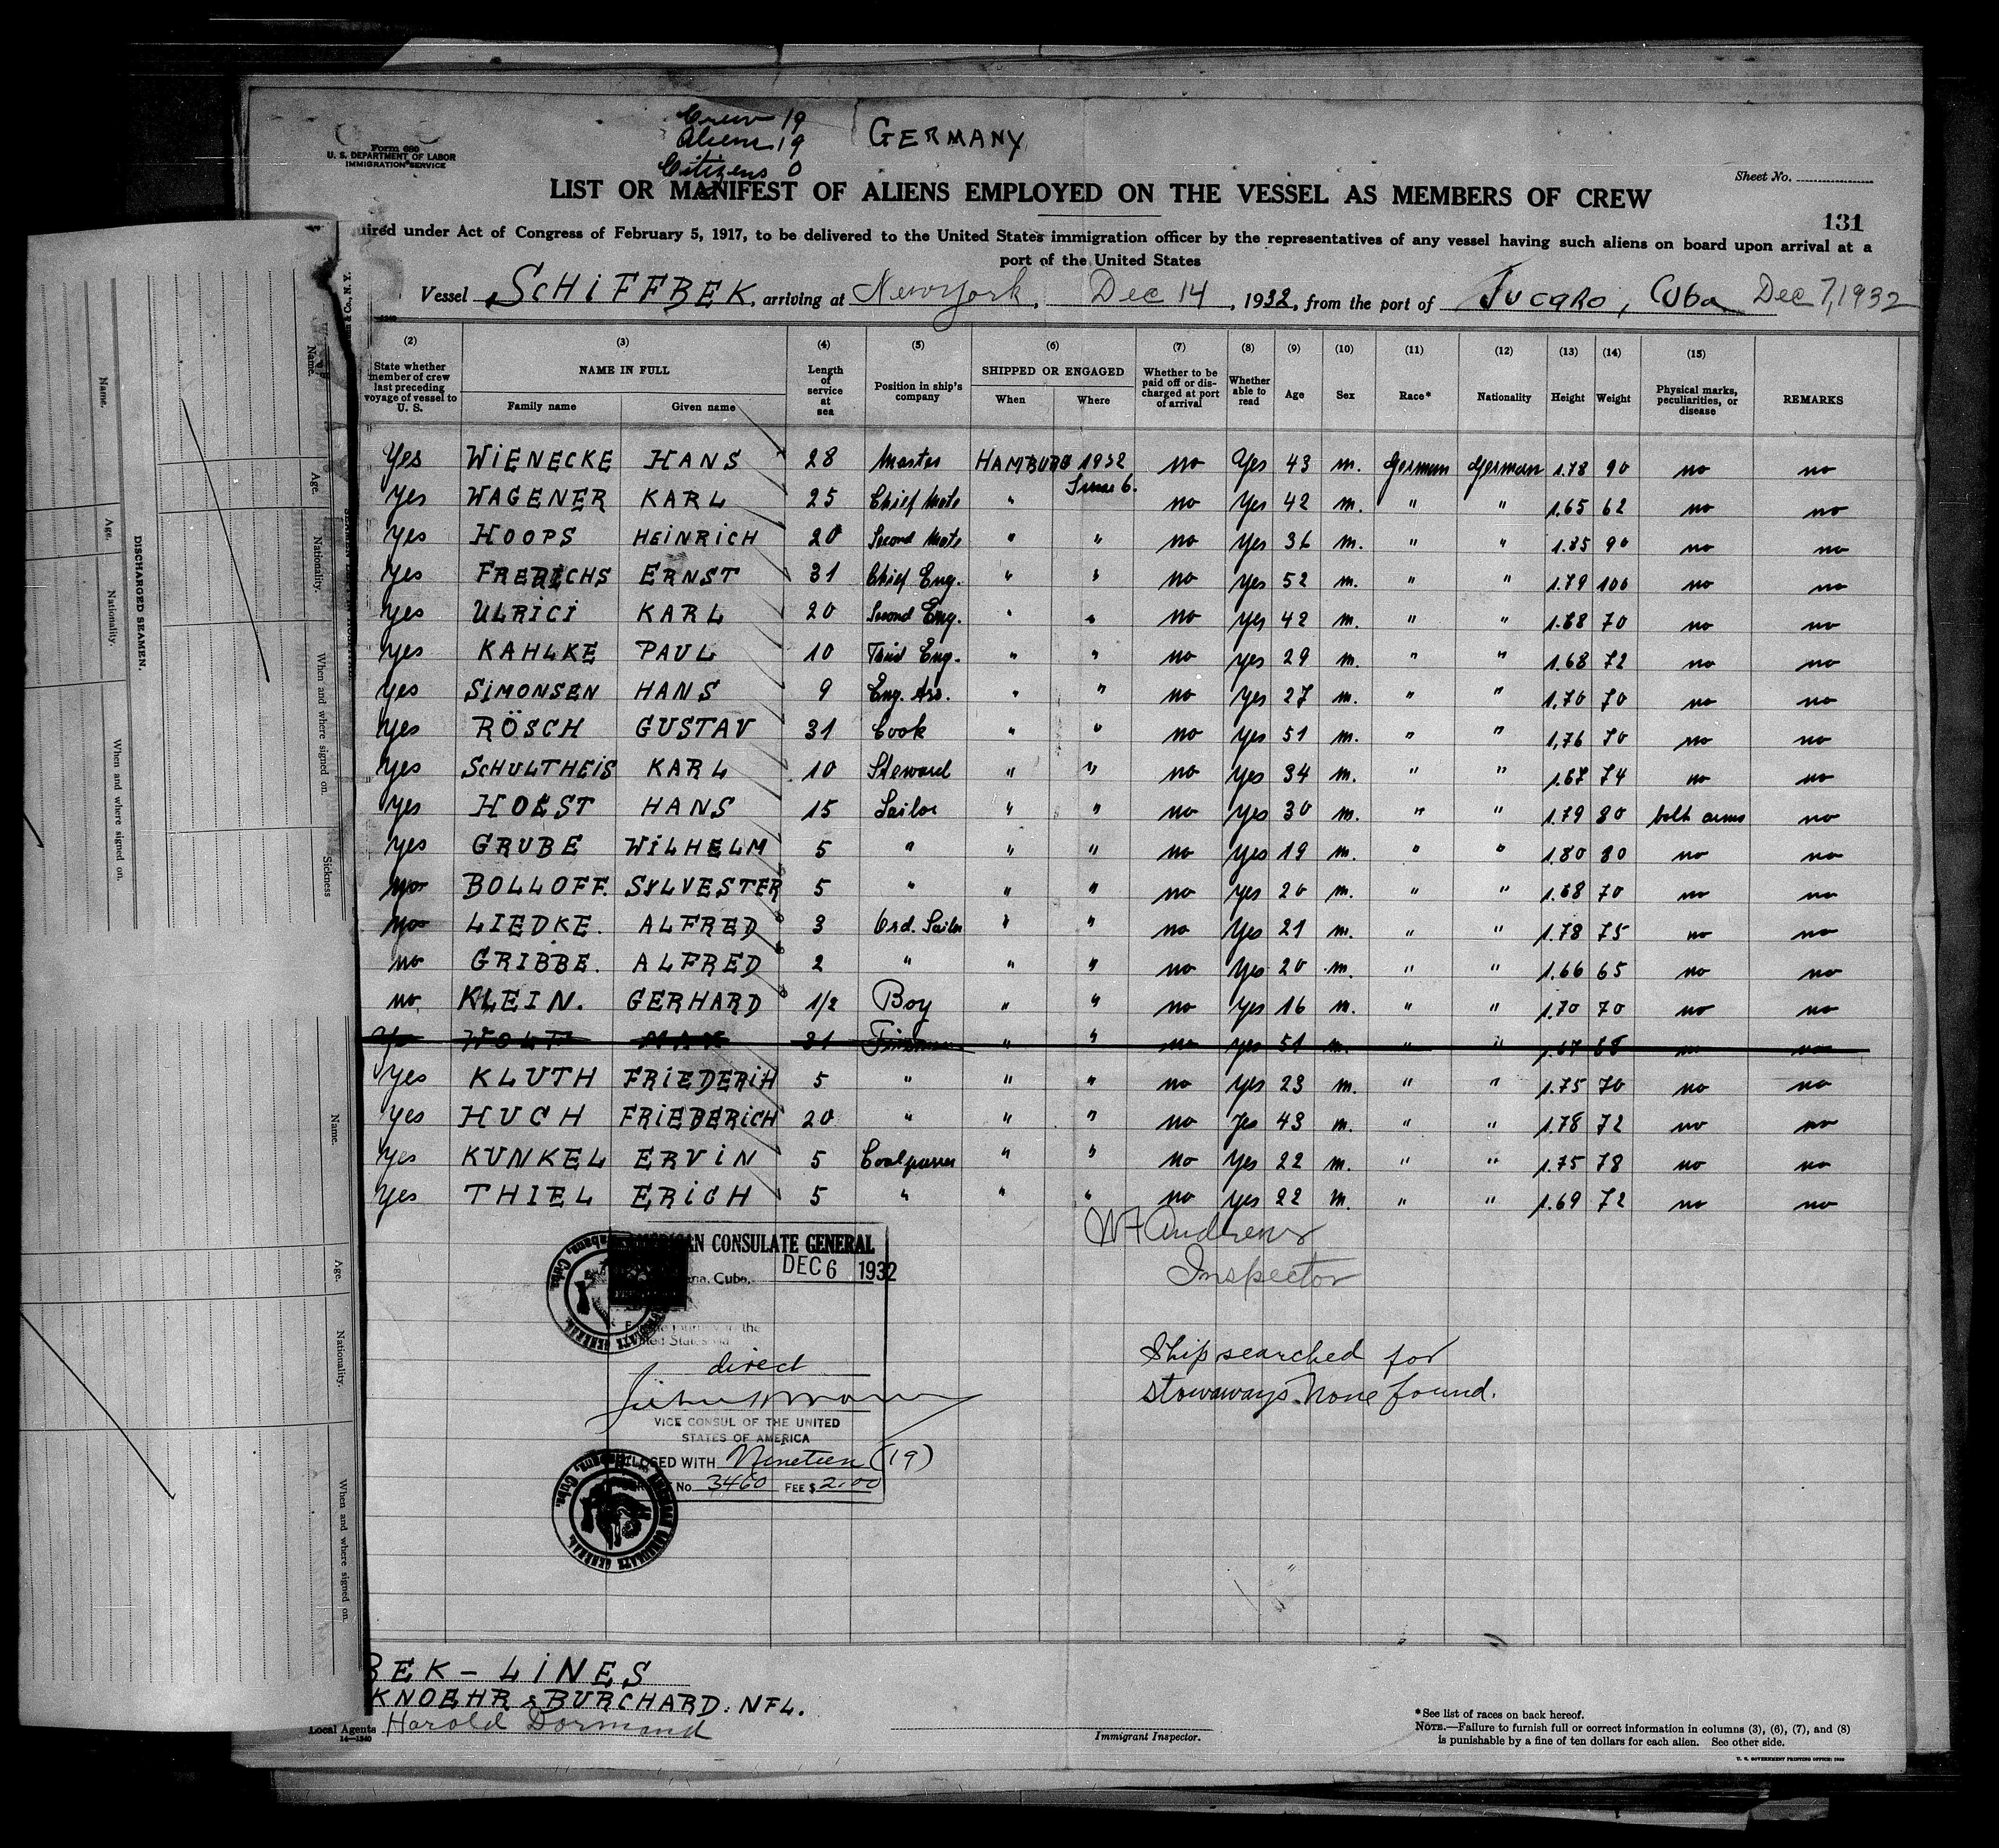 Crew 19
Aliens 19
Citizens 0
GERMANY
Form 680
U. S. DEPARTMENT OF LABOR
IMMIGRATION SERVICE
Sheet No.
LIST OR MANIFEST OF ALIENS EMPLOYED ON THE VESSEL AS MEMBERS OF CREW
131
uired under Act of Congress of February 5, 1917, to be delivered to the United States immigration officer by the representatives of any vessel having such aliens on board upon arrival at a
port of the United States
Vessel SCHIFFBEK, arriving at New York, Dec 14, 1932, from the port of Jucaro, Cuba Dec 7, 1932
(2) (3) (4) (5) (6) (7) (8) (9) (10) (11) (12) (13) (14) (15)
State whether member of crew last preceding voyage of vessel to U. S. NAME IN FULL Family name Given name Length of service at sea Position in ship's company SHIPPED OR ENGAGED When Where Whether to be paid off or discharged at port of arrival Whether able to read Age Sex Race* Nationality Height Weight Physical marks, peculiarities, or disease REMARKS
Yes WIENECKE HANS 28 Master HAMBURG 1932 no Yes 43 m. German German 1.78 90 no no
Yes WAGENER KARL 25 Chief Mate " June 6. no Yes 42 m. " " 1.65 62 no no
Yes HOOPS HEINRICH 20 Second Mate " " no Yes 36 m. " " 1.85 90 no no
Yes FRERICHS ERNST 31 Chief Eng. " " no Yes 52 m. " " 1.79 100 no no
Yes ULRICI KARL 20 Second Eng. " " no Yes 42 m. " " 1.68 70 no no
Yes KAHLKE PAUL 10 Third Eng. " " no Yes 29 m. " " 1.68 72 no no
Yes SIMONSEN HANS 9 Eng. Ass. " " no Yes 27 m. " " 1,70 70 no no
Yes RÖSCH GUSTAV 31 Cook " " no Yes 51 m. " " 1,76 70 no no
Yes SCHULTHEIS KARL 10 Steward " " no Yes 34 m. " " 1.67 74 no no
Yes HOLST HANS 15 Sailor " " no Yes 30 m. " " 1.79 80 both arms no
Yes GRUBE WILHELM 5 " " " no Yes 19 m. " " 1.80 80 no no
BOLLOFF. SYLVESTER 5 " " " no Yes 20 m. " " 1.68 70 no no
LIEDKE. ALFRED 3 Ord. Sailor " " no Yes 21 m. " " 1.78 75 no no
no GRIBBE. ALFRED 2 " " " no Yes 20 m. " " 1.66 65 no no
no KLEIN. GERHARD 1/2 Boy " " no Yes 16 m. " " 1.70 70 no no
Yes MAX 31 Fireman " " no Yes 51 m. " " 1.67 68 no no
Yes KLUTH FRIEDERIH 5 " " " no Yes 23 m. " " 1.75 70 no no
Yes HUCH FRIEDERICH 20 " " " no Yes 43 m. " " 1.78 72 no no
Yes KUNKEL ERVIN 5 Coalpasser " " no Yes 22 m. " " 1.75 78 no no
Yes THIEL ERICH 5 " " " no Yes 22 m. " " 1.69 72 no no
Inspector
AMERICAN CONSULATE GENERAL
Cuba. DEC 6 1932
direct
VICE CONSUL OF THE UNITED
STATES OF AMERICA
CLOSED WITH Nineteen (19)
No. 3460 FEE $ 2.00
Ship searched for
stowaways. None found.
BEK-LINES
KNOEHR & BURCHARD. NFL.
Local Agents Harold Dormand
14—1240
Immigrant Inspector.
*See list of races on back hereof.
NOTE.—Failure to furnish full or correct information in columns (3), (6), (7), and (8)
is punishable by a fine of ten dollars for each alien. See other side.
U. S. GOVERNMENT PRINTING OFFICE:
DISCHARGED SEAMEN.
Name. Age. Nationality. When and where signed on.
Name. Age. Nationality. When and where signed on. Sickness
Name. Age. Nationality. When and where signed on.